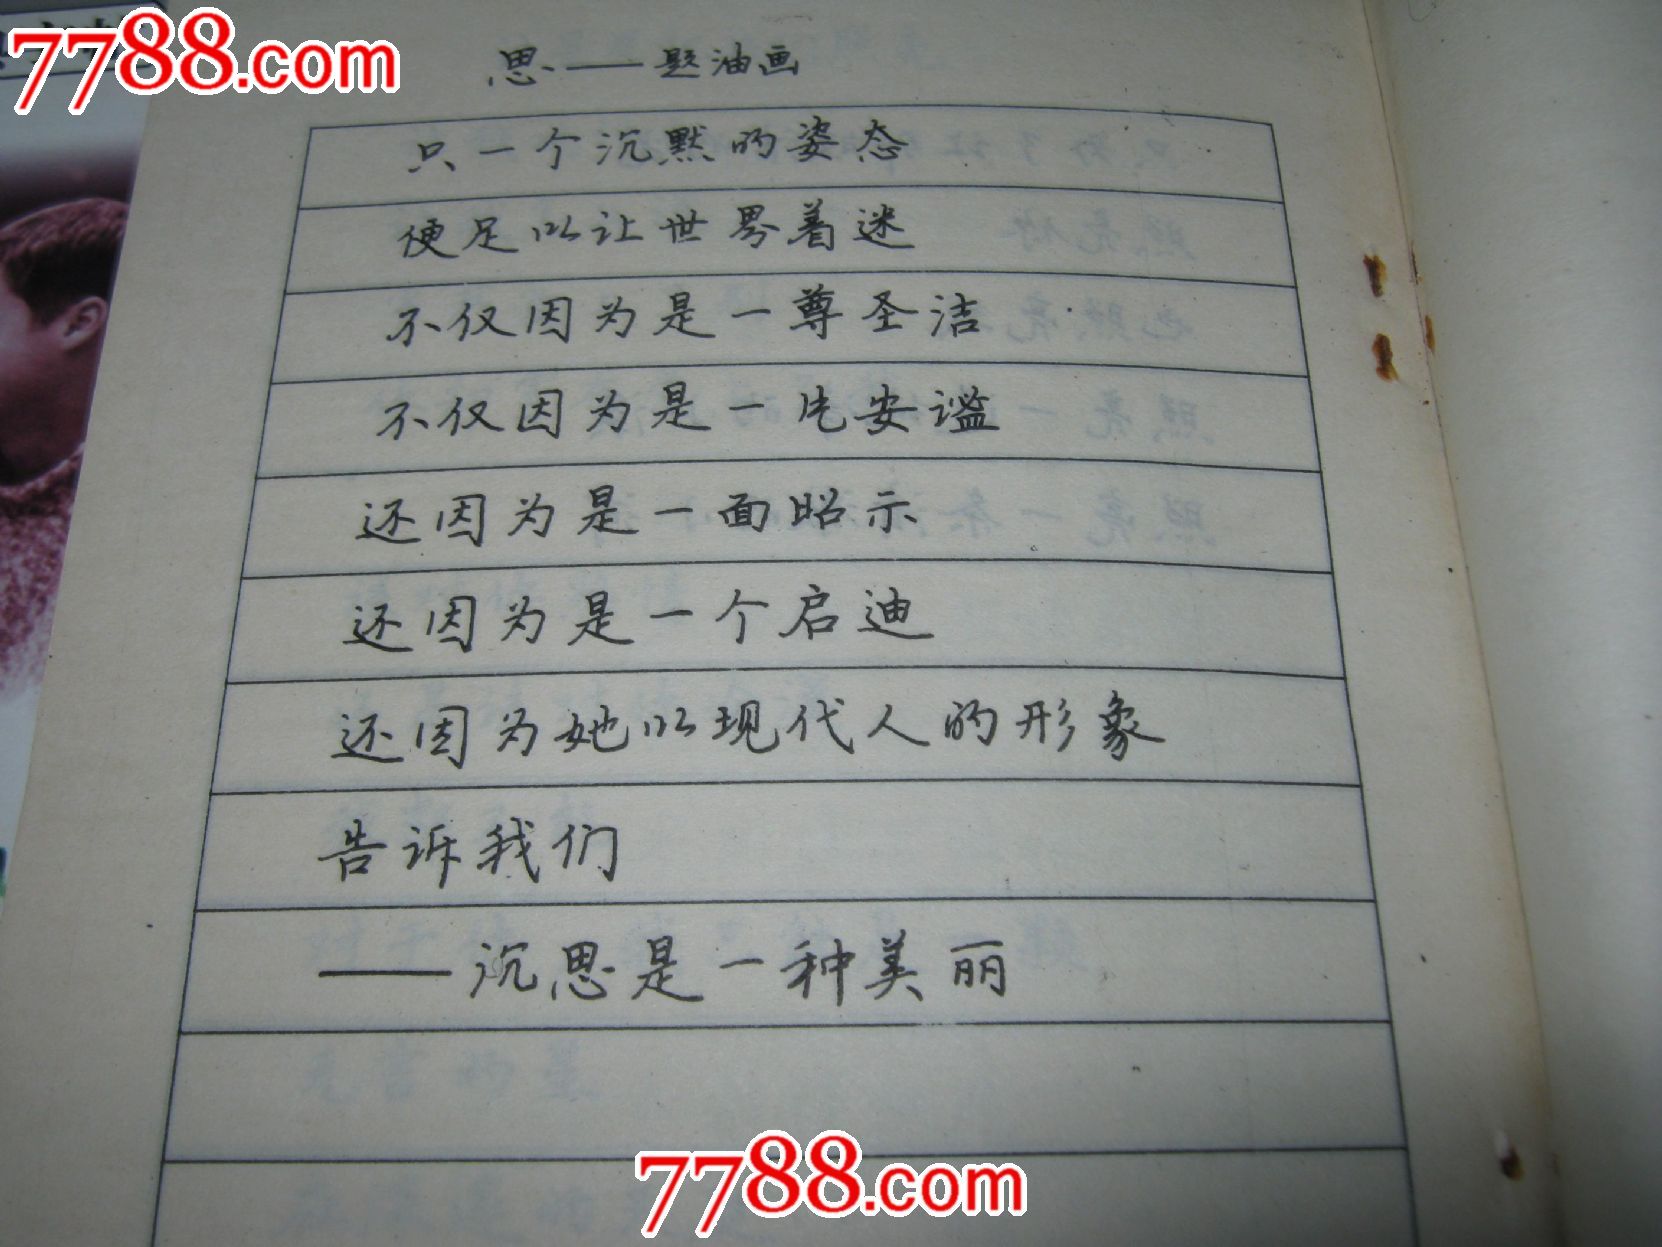 7788.com
思——题油画
只一个沉默的姿态
便足以让世界着迷
不仅因为是一尊圣洁
不仅因为是一片安谧
还因为是一面昭示
还因为是一个启迪
还因为她以现代人的形象
告诉我们
——沉思是一种美丽
7788.com